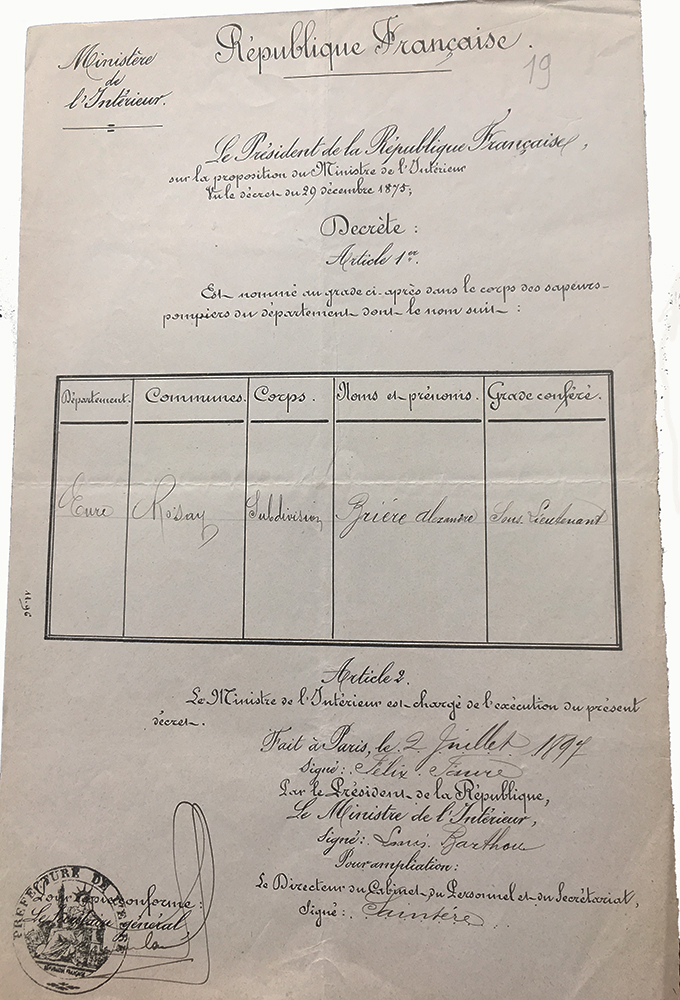 République Française.
19
Ministère
de
l'Intérieur.
Le Président de la République Française,
sur la proposition du Ministre de l'Intérieur
Vu le décret du 29 décembre 1875;
Decrète :
Article 1er.
Est nommé au grade ci-après dans le corps des sapeurs-
pompiers du département dont le nom suit :
Département. Communes. Corps. Noms et prénoms. Grade conféré.
Eure Rosay Subdivision Brière Alexandre Sous-Lieutenant
11.96
Article 2.
Le Ministre de l'Intérieur est chargé de l'exécution du présent
décret.
Fait à Paris, le 2 Juillet 1897
Signé : Félix Faure
Par le Président de la République,
Le Ministre de l'Intérieur,
Signé : Louis Barthou
Pour ampliation :
Le Directeur du Cabinet du Personnel et du Secrétariat,
Signé :
PREFECTURE DE L'EURE
Pour copie conforme :
Le général